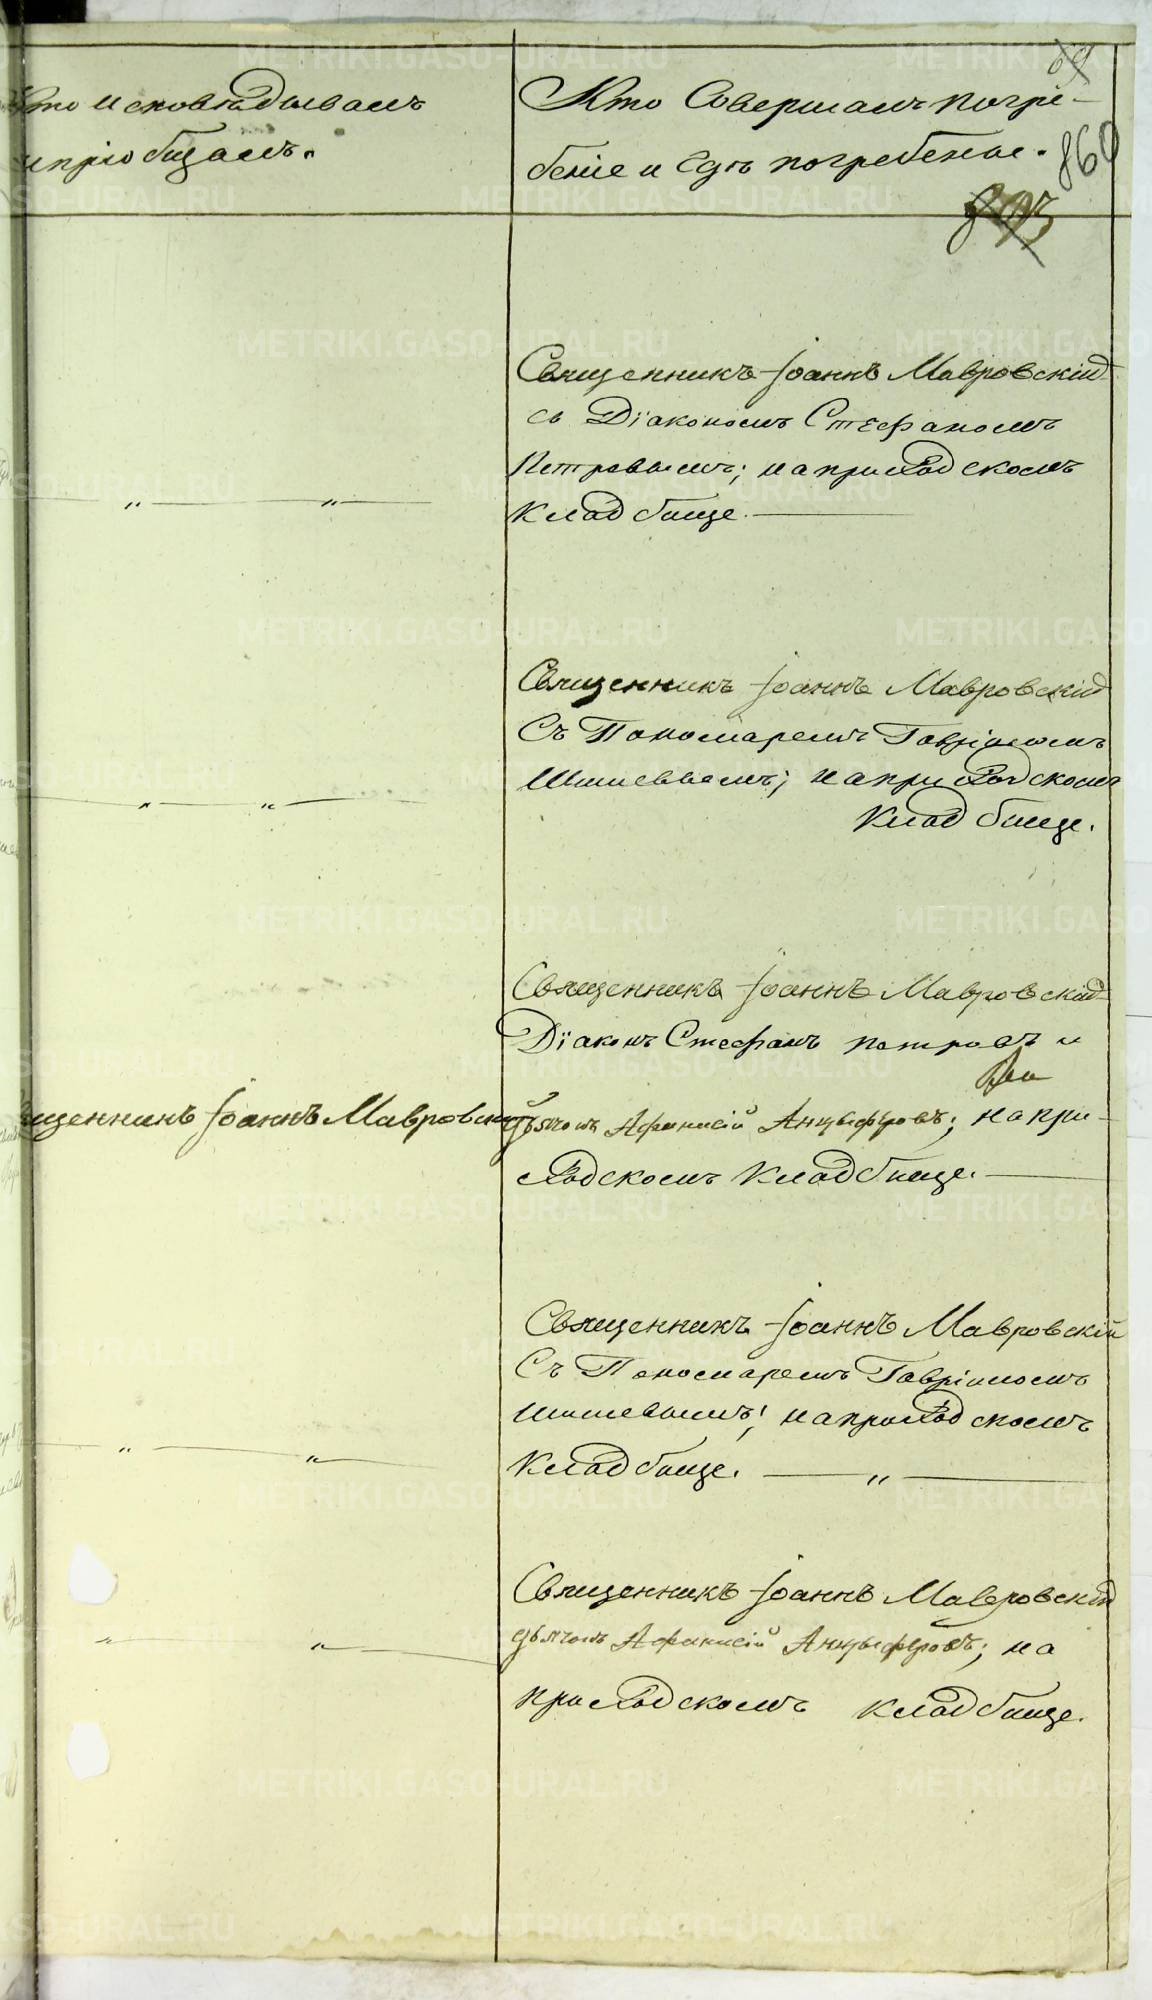 Кто исповѣдывалъ
и пріобщалъ.
Кто Совершалъ погре-
беніе и гдѣ погребены.
69
860
Священникъ Іоаннъ Мавровскій
съ Діакономъ Стефаномъ
Петровымъ; на приходскомъ
кладбище.
Священникъ Іоаннъ Мавровскій
Съ Пономаремъ Гавріиломъ
Шишевымъ; на приходскомъ
кладбище.
Священникъ Іоаннъ Мавровскій
Діаконъ Стефанъ Петровъ и
щенникъ Іоаннъ Мавровскій
дьячокъ Афанасій Анцыферовъ; на при-
ходскомъ кладбище.
Священникъ Іоаннъ Мавровскій
Съ Пономаремъ Гавріиломъ
Шишевымъ; на приходскомъ
кладбище.
Священникъ Іоаннъ Мавровскій
дьячокъ Афанасій Анцыферовъ; на
приходскомъ кладбище.
METRIKI.GASO-URAL.RU